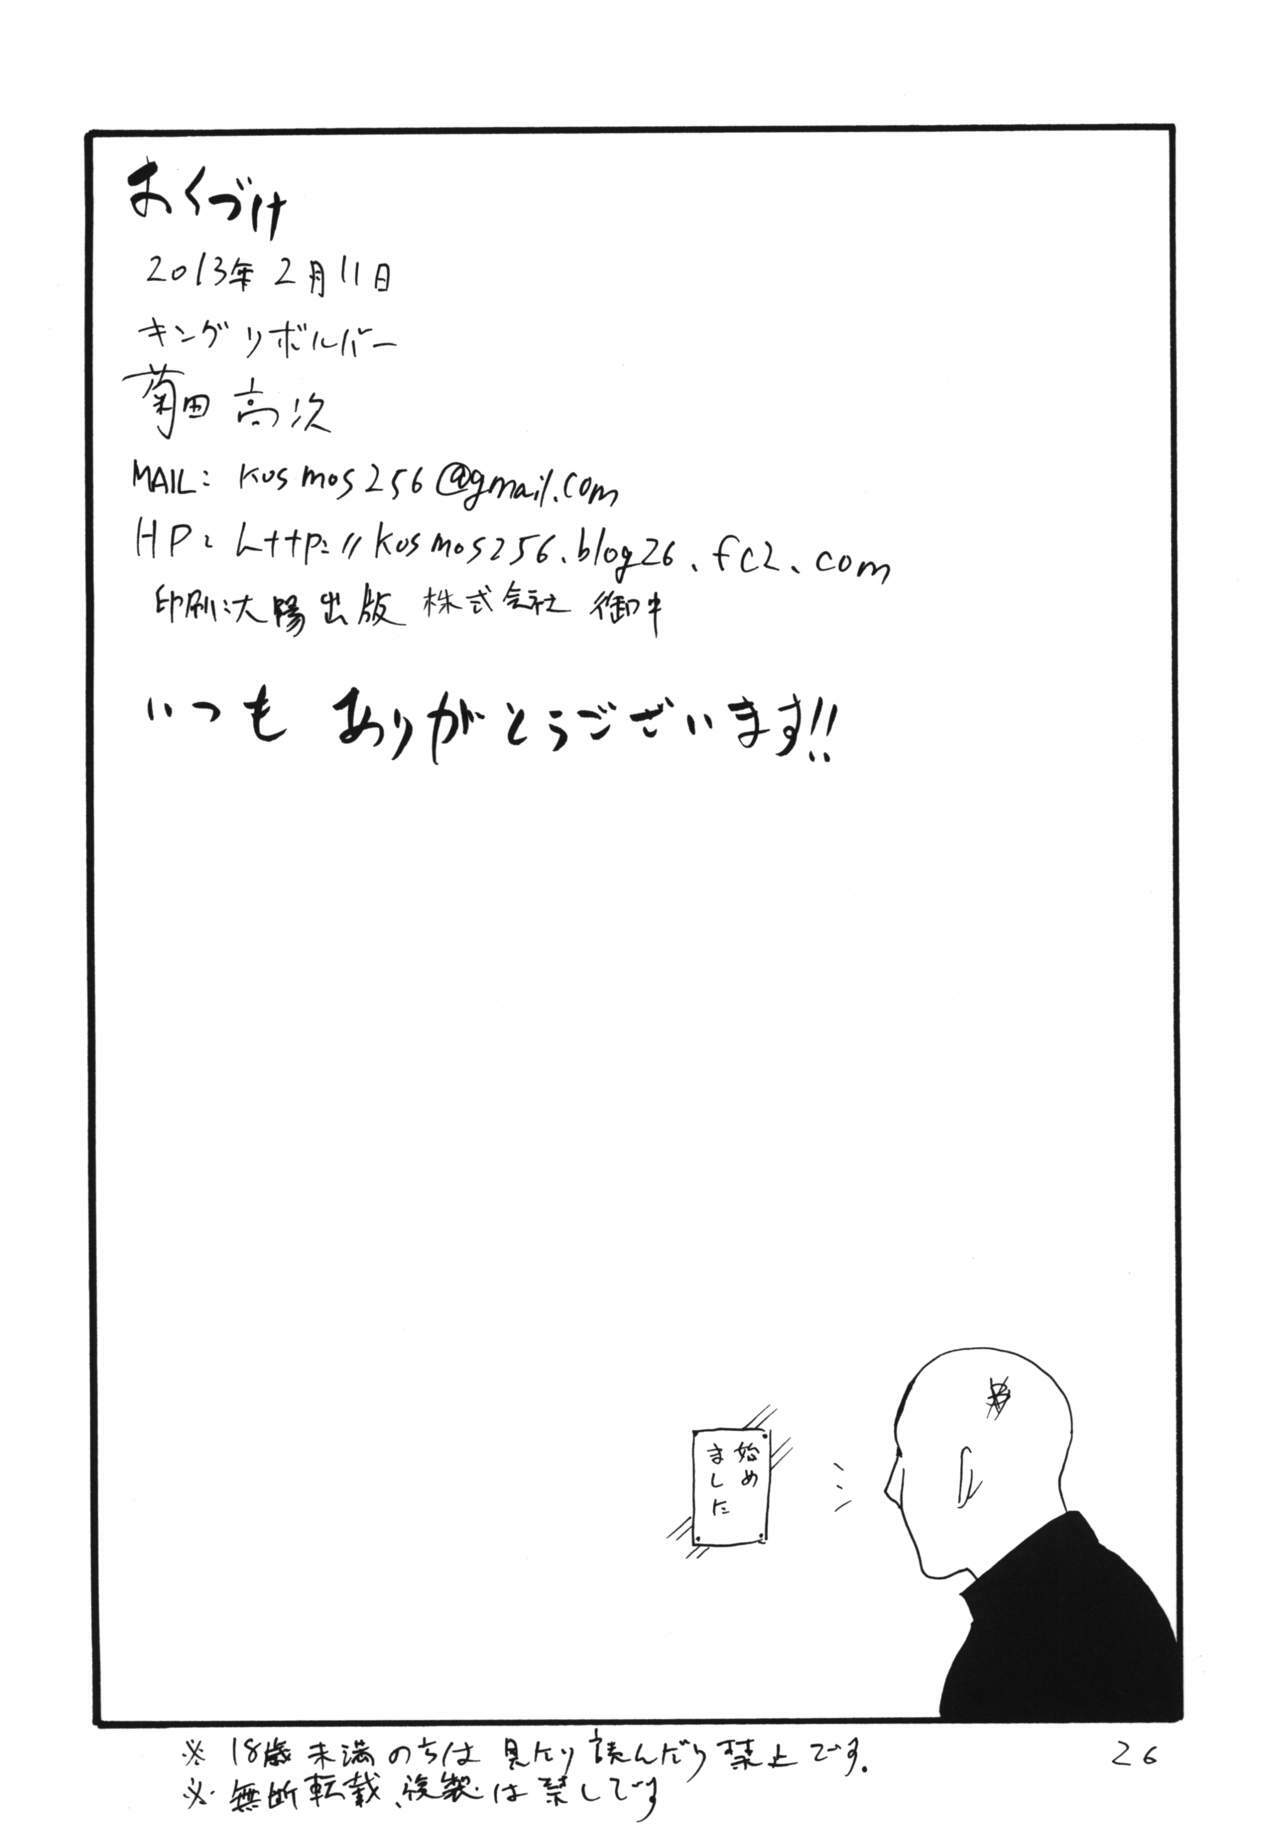 おくづけ
2013年2月11日
キングリボルバー
菊田高次
MAIL: kosmos256@gmail.com
HP: http://kosmos256.blog26.fc2.com
印刷:大陽出版 株式会社 御中
いつも ありがとうございます!!
始め
ました
※ 18歳未満のちは見たり読んだり禁止です。
※ 無断転載、複製は禁しです
26